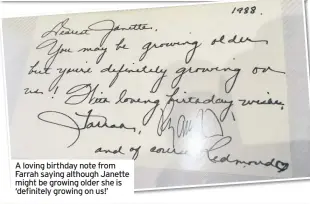 1988.
Dearest Janette,
You may be growing older
but you're definitely growing on
us! With loving birthday wishes,
Farrah, Ryan
and of course Redmond
A loving birthday note from
Farrah saying although Janette
might be growing older she is
'definitely growing on us!'